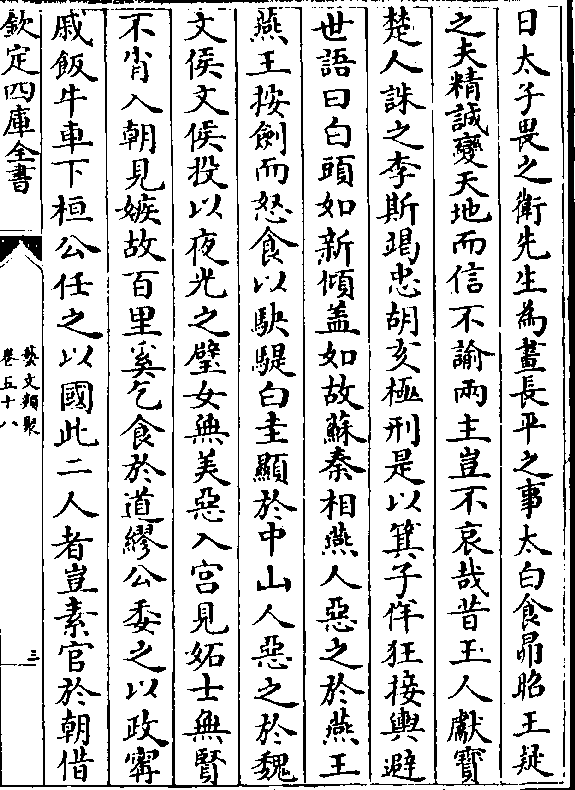 日太子畏之衛先生為畫長平之事太白食昴昭王疑
之夫精誠變天地而信不諭兩主豈不哀哉昔玉人獻寶
楚人誅之李斯竭忠胡亥極刑是以箕子佯狂接輿避
世語曰白頭如新傾盖如故蘇秦相燕人惡之於燕王
燕王按劍而怒食以駃騠白圭顯於中山人惡之於魏
文侯文侯投以夜光之璧女無美惡入宫見妬士無賢
不肖入朝見嫉故百里奚乞食於道繆公委之以政甯
戚飯牛車下桓公任之以國此二人者豈素官於朝借
欽定四庫全書
藝文類聚
卷五十八
三